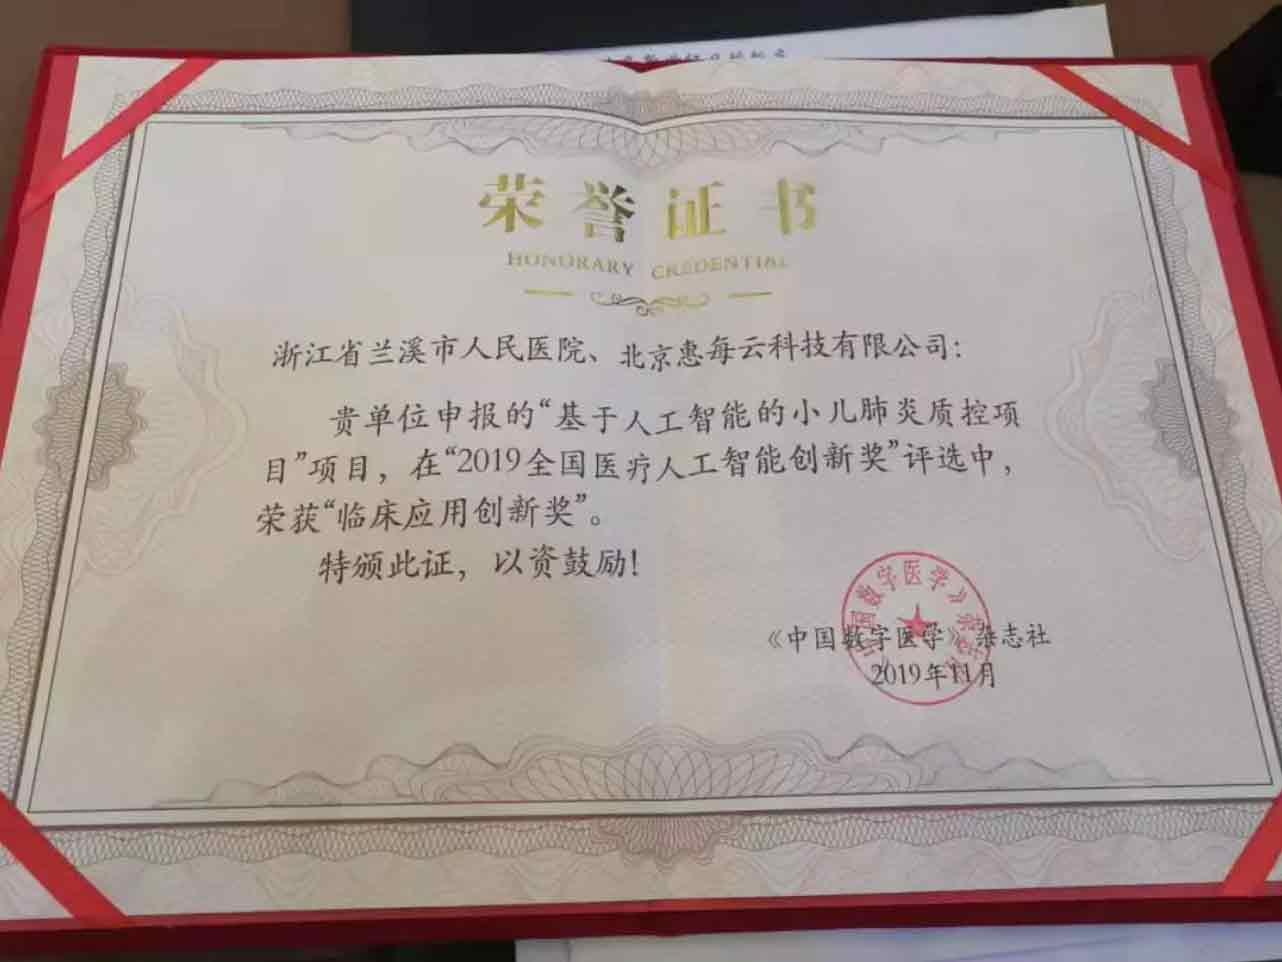 荣誉证书
HONORARY CREDENTIAL
浙江省兰溪市人民医院、北京惠每云科技有限公司：
贵单位申报的“基于人工智能的小儿肺炎质控项
目”项目，在“2019全国医疗人工智能创新奖”评选中，
荣获“临床应用创新奖”。
特颁此证，以资鼓励！
《中国数字医学》杂志社
2019年11月
《中国数字医学》杂志社